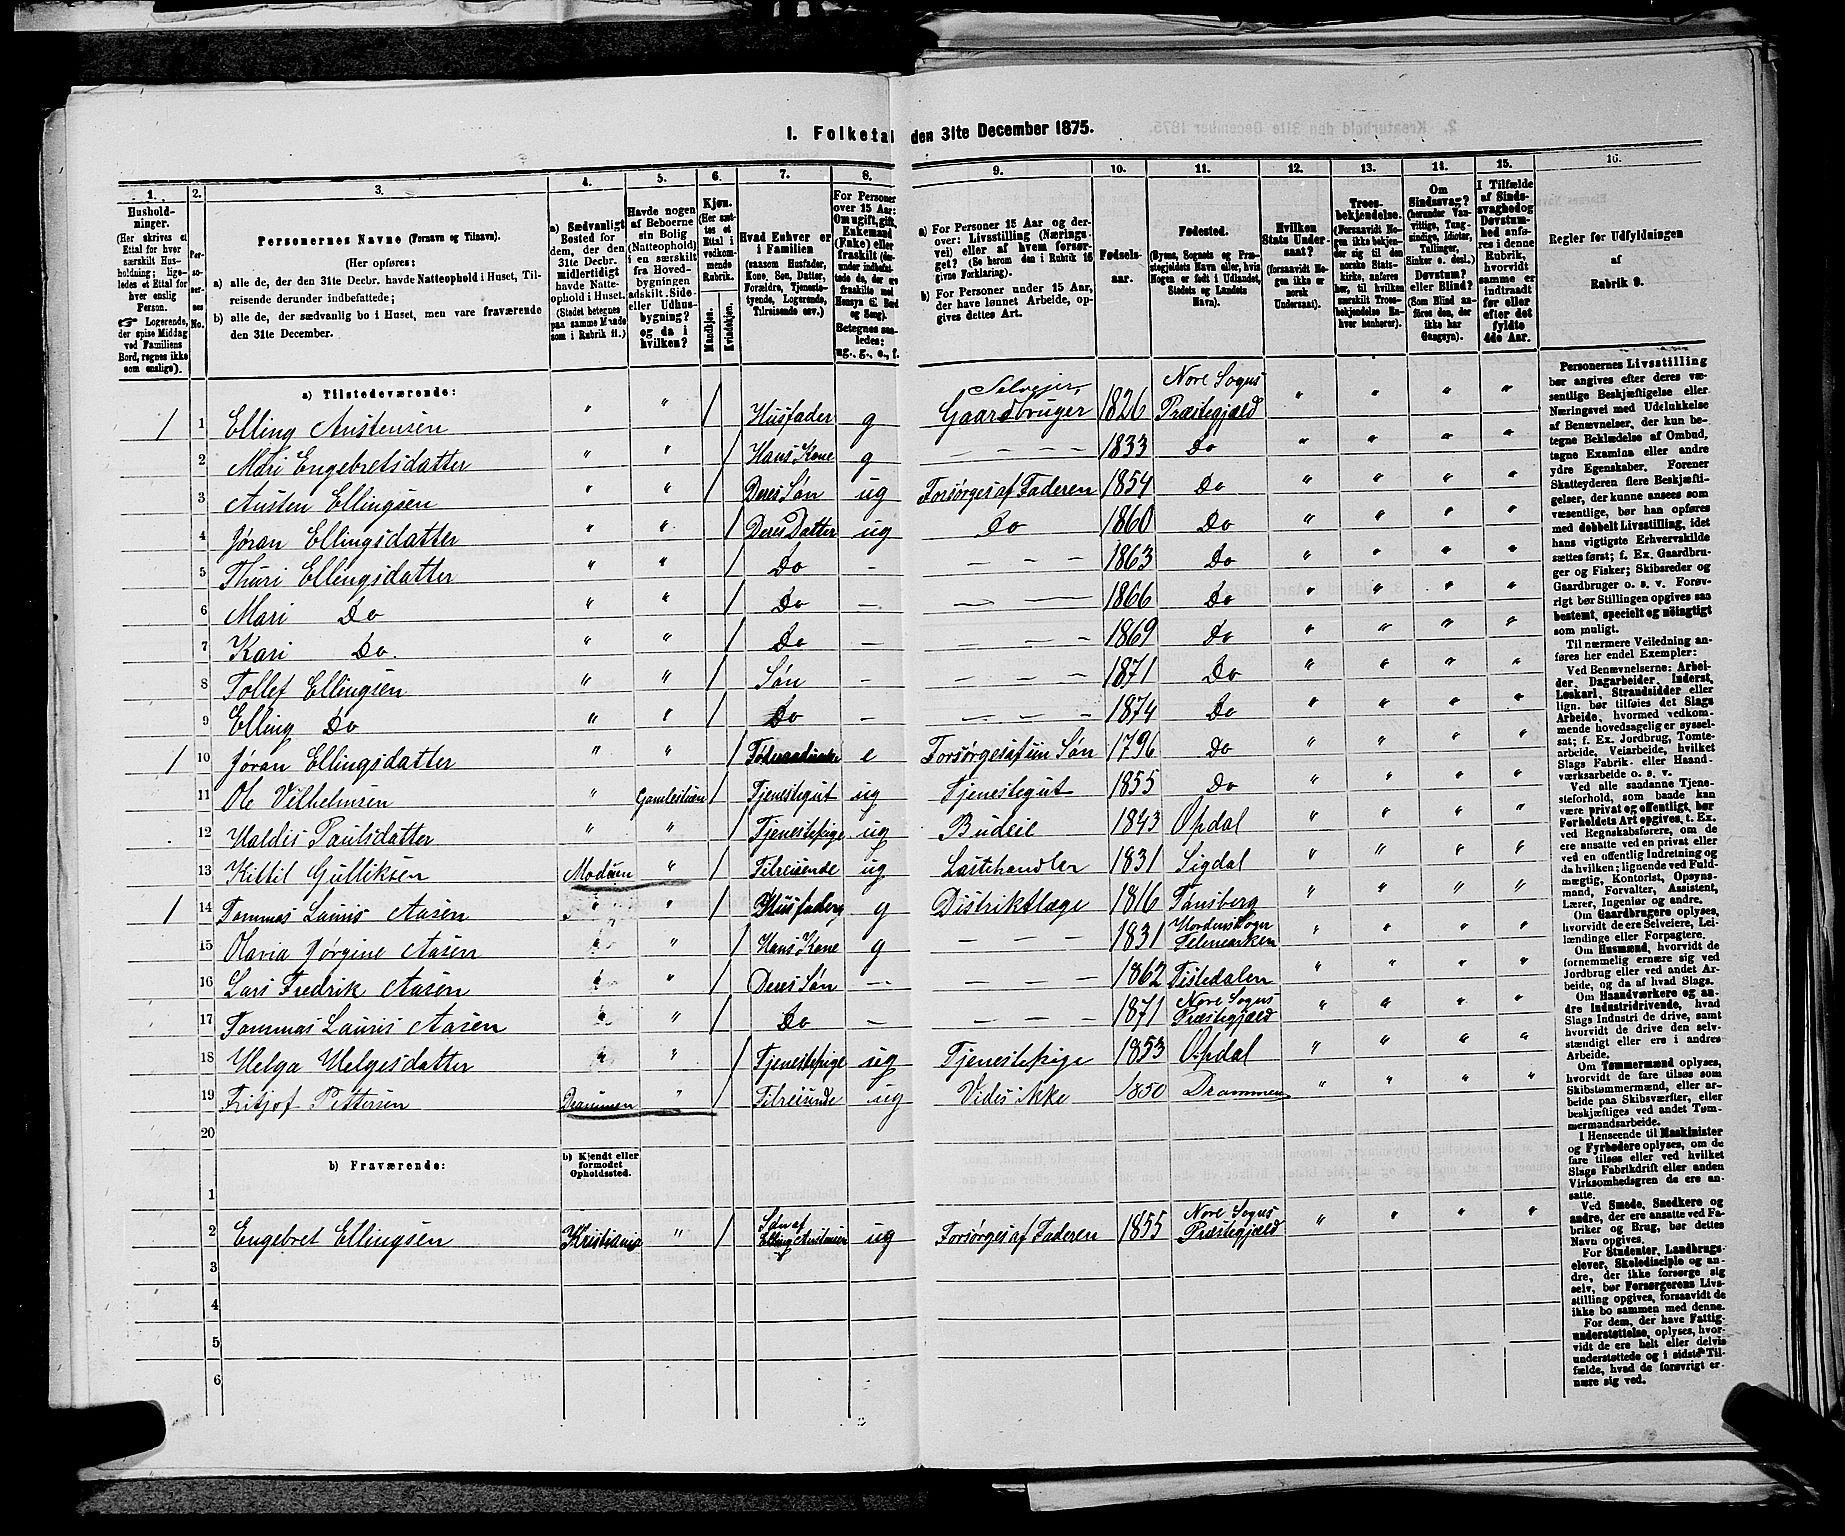 I. Folketal den 31te December 1875.
1. 2. 3. 4. 5. 6. 7. 8. 9. 10. 11. 12. 13. 14. 15. 16.
Husholdninger.
(Her skrives et Ettal for hver særskilt Husholdning; ligeledes et Ettal for hver enslig Person.
Logerende, der spise Middag ved Familiens Bord, regnes ikke som enslige).
Personernes No.
Personernes Navne (Fornavn og Tilnavn).
(Her opføres:
a) alle de, der den 31te Decbr. havde Natteophold i Huset, Tilreisende derunder indbefattede;
b) alle de, der sædvanlig bo i Huset, men vare fraværende den 31te December.
a) Sædvanligt Bosted for dem, der den 31te Decbr. midlertidigt havde Natteophold i Huset. (Stedet betegnes paa samme Maade som i Rubrik 11.)
Havde nogen af Beboerne sin Bolig (Natteophold) i en særskilt fra Hovedbygningen adskilt Side- eller Udhusbygning? og da i hvilken?
Kjøn. (Her sættes et Ettal i vedkommende Rubrik.
Mandkjøn. Kvindekjøn.
Hvad Enhver er i Familien
(saasom Husfader, Kone, Søn, Datter, Forældre, Tjenestetyende, Logerende, Tilreisende osv.)
For Personer over 15 Aar: Om ugift, gift, Enkemand (Enke) eller fraskilt
Betegnes saaledes: ug., g., e., f.
a) For Personer 15 Aar og derover: Livsstilling (Næringsvei) eller af hvem forsørget? (Se herom den i Rubrik 16 givne Forklaring).
b) For Personer under 15 Aar, der have lønnet Arbeide, opgives dettes Art.
Fødselsaar.
Fødested.
(Byens, Sognets og Præstegjældets Navn eller, hvis Nogen er født i Udlandet, Stedets og Landets Navn).
Hvilken Stats Undersaat?
(forsaavidt Nogen ikke er norsk Undersaat).
Troesbekjendelse.
(Forsaavidt Nogen ikke bekjender sig til den norske Statskirke, anføres her, til hvilken særskilt Troesbekjendelse Enhver henhører).
Om Sindssvag? (herunder Vanvittige, Tungsindige, Idioter, Tullinger, Sinker o. desl.)
Døvstum? eller Blind? (Som Blind anføres den, der ikke har Gangsyn).
I Tilfælde af Sindssvaghed og Døvstumhed anføres i denne Rubrik, hvorvidt samme er indtraadt før eller efter det fyldte 4de Aar.
Regler før Udfyldningen af Rubrik 9.
a) Tilstedeværende:
1 1 Elling Austensen " " / Husfader g Selveier Gaardbruger 1826 Nore Sogns Præstegjæld " " " "
2 Mari Engebretsdatter " " / Hans Kone g — — — — 1833 Do " " " "
3 Austen Ellingsen " " / Deres Søn ug Forsørges af Faderen 1854 Do " " " "
4 Jøran Ellingsdatter " " / Deres Datter ug Do 1860 Do " " " "
5 Thuri Ellingsdatter " " / Do — — — — 1863 Do " " " "
6 Mari Do " " / Do — — — — 1866 Do " " " "
7 Kari Do. " " / Do — — — — 1869 Do " " " "
8 Tollef Ellingsen " " / Søn — — — — 1871 Do " " " "
9 Elling Do " " / Do — — — — 1874 Do " " " "
1 10 Jøran Ellingsdatter " " / e Forsørges af sin Søn 1796 Do " " " "
11 Ole Vilhelmsen " Gamlestuen / Tjenestegut ug Tjenestegut 1855 Do " " " "
12 Haldis Paulsdatter " " / Tjenestepige ug Budeie 1843 Opdal " " " "
13 Kittil Gulliksen Modum " / Tilreisende ug Lastehandler 1831 Sigdal " " " "
1 14 Tommas Lauris Aasen " " / Husfader g Distriktlæge 1816 Tønsberg " " " "
15 Olavia Jørgine Aasen " " / Hans Kone g — — — 1831 Telemarken " " " "
16 Lars Fredrik Aasen " " / Deres Søn — — — — 1862 Tistedalen " " " "
17 Tommas Lauris Aasen " " / Do — — — — 1871 Nore Sogns Præstegjæld " " " "
18 Helga Helgesdatter " " / Tjenestepige ug Tjenestepige 1853 Opdal " " " "
19 Fritjof Pettersen Drammen " / Tilreisende ug Vides ikke 1850 Drammen " " " "
20
b) Fraværende:
b) Kjendt eller formodet Opholdssted.
1
2 Engebret Ellingsen Kristiania " / Søn af Elling Austensen ug Forsørges af Faderen 1855 Nore Sogns Præstegjæld " " " "
3
4
5
6
Personernes Livsstilling bør angives efter deres væsentlige Beskjæftigelse eller Næringsvei med Udelukkelse af Benævnelser, der kun betegne Beklædelse af Ombud, tagne Examina eller andre ydre Egenskaber. Forener Skatteyderen flere Beskjæftigelser, der kunne ansees som væsentlige, bør han opføres med dobbelt Livsstilling, idet hans vigtigste Erhvervskilde sættes først; f. Ex. Gaardbruger og Fisker; Skibsreder og Gaardbruger o. s. v. Forøvrigt bør Stillingen opgives saa bestemt, specielt og nöiagtigt som muligt.
Til nærmere Veiledning anføres her endel Exempler:
Ved Benævnelserne: Arbeider, Dagarbeider, Inderst, Løskarl, Strandsidder eller lign. bør tilføies det Slags Arbeide, hvormed vedkommende hovedsagelig er sysselsat; f. Ex. Jordbrug, Tomtearbeide, Veiarbeide, hvilket Slags Fabrik- eller Haandværksarbeide o. s. v.
Ved alle saadanne Tjenesteforhold, som baade kan være privat og offentligt, bør Forholdets Art opgives, t. Ex. ved Regnskabsførere, om de ere ansatte ved en privat eller ved en offentlig Indretning og da hvilken; lignende ved Fuldmægtig, Kontorist, Opsynsmand, Forvalter, Assistent, Lærer, Ingeniør og andre.
Om Gaardbrugere oplyses, hvorvidt de ere Selveiere, Leilændinge eller Forpagtere.
Om Husmænd, hvorvidt de fornemmelig ernære sig ved Jordbrug eller ved andet Arbeide, og da af hvad Slags.
Om Haandværkere og andre Industridrivende, hvad Slags Industri de drive, samt hvorvidt de drive den selvstændigt eller ere i andres Arbeide.
Om Tømmermænd oplyses, hvorvidt de fare tilsøs som Skibstømmermænd, eller arbeide paa Skibsværfter, eller beskjæftiges ved andet Tømmermandsarbeide.
I Henseende til Maskinister og Fyrbødere oplyses, om de fare tilsøs eller ved hvilket Slags Fabrikdrift eller anden Virksomhedsgren de ere ansatte.
Ved Smede, Snedkere og andre, der ere ansatte ved Fabriker og Brug, bør dettes Navn opgives.
For Studenter, Landbrugselever, Skoledisciple og andre, der ikke forsørge sig selv, bør Forsørgerens Livsstilling opgives, forsaavidt de ikke bo sammen med denne.
For dem, der have Fattigunderstøttelse, oplyses, hvorvidt de ere helt eller delvis understøttede og i sidste Tilfælde, hvad de forøvrigt ernære sig ved.